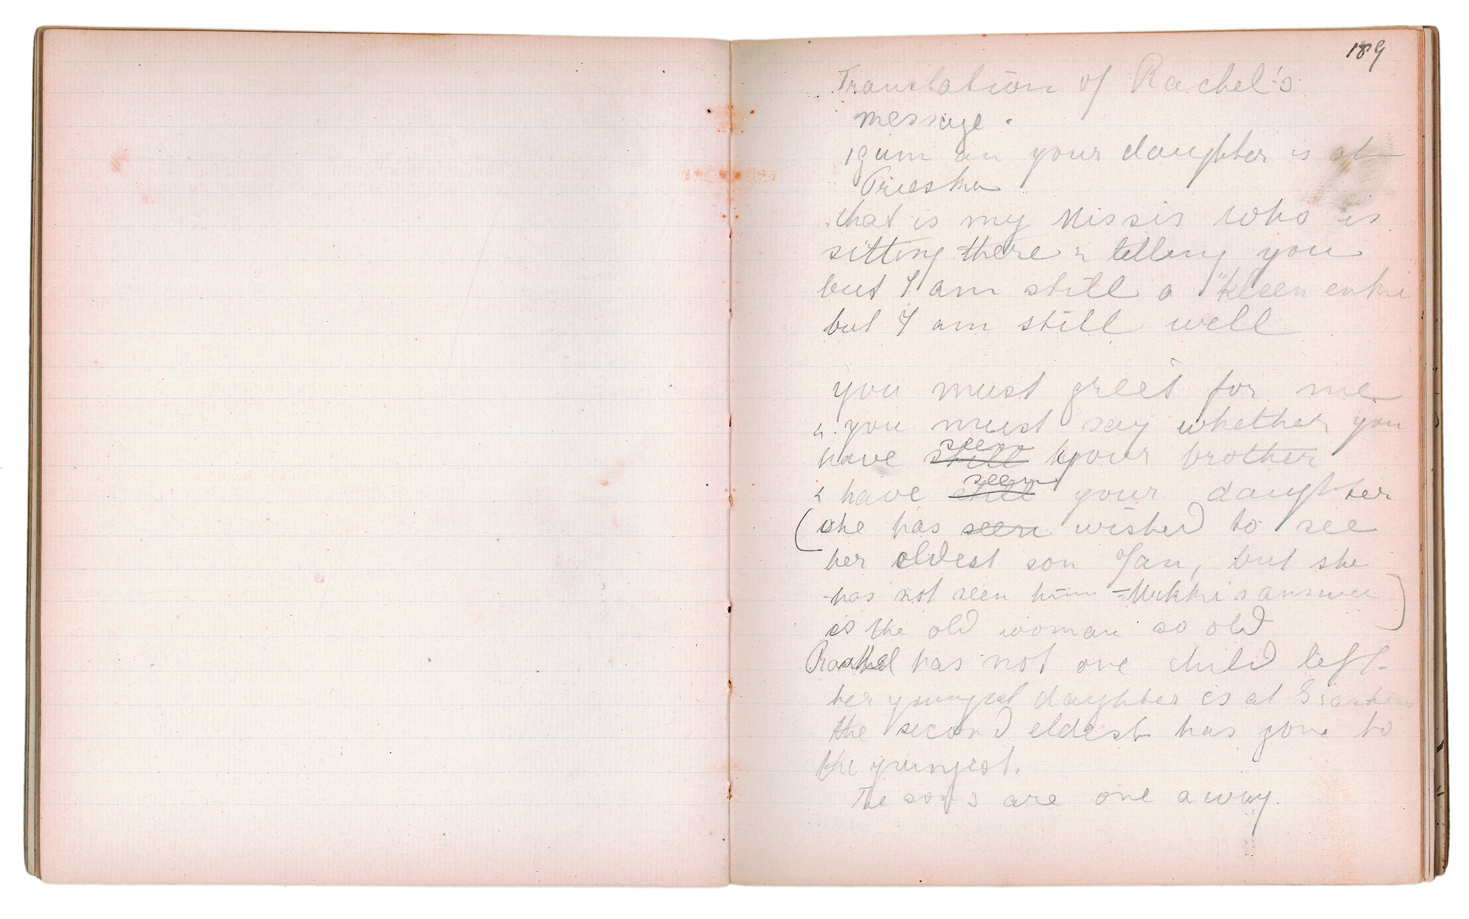 189
Translation of Rachel's
message.
your daughter is at
Prieska
that is my Missis who is
sitting there & telling you
but I am still a "kleen
but I am still well
you must greet for me
& you must say whether you
have still seen your brother
& have still seen your daughter
(she has seen wished to see
her oldest son Jan, but she
has not seen him answer)
is the old woman so old
Rachel has not one child left
her youngest daughter is at
the second eldest has gone to
the youngest.
The sons are one away.